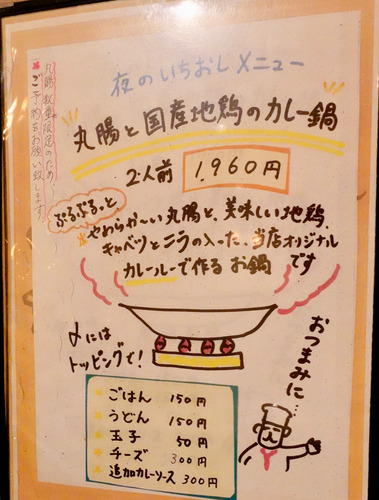 丸腸 数量限定のため、
ご予約をお願い致します。
夜のいちおしメニュー
丸腸と国産地鶏のカレー鍋
2人前 1,960円
ぷるぷるっと
やわらか〜い丸腸と、美味しい地鶏、
キャベツとニラの入った、当店オリジナル
カレールーで作る お鍋です
〆には
トッピングで!
おつまみに…
ごはん 150円
うどん 150円
玉子 50円
チーズ 300円
追加カレーソース 300円